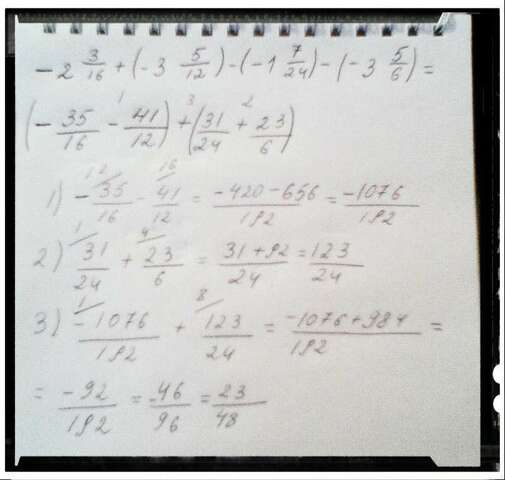 - 2 3/16 + (- 3 5/12) - (- 1 7/24) - (- 3 5/6) =
(- 35/16 - 41/12) + (31/24 + 23/6)
1) - 35/16 - 41/12 = -420 - 656/192 = -1076/192
2) 31/24 + 23/6 = 31 + 92/24 = 123/24
3) -1076/192 + 123/24 = -1076 + 984/192 =
= -92/192 = -46/96 = 23/48